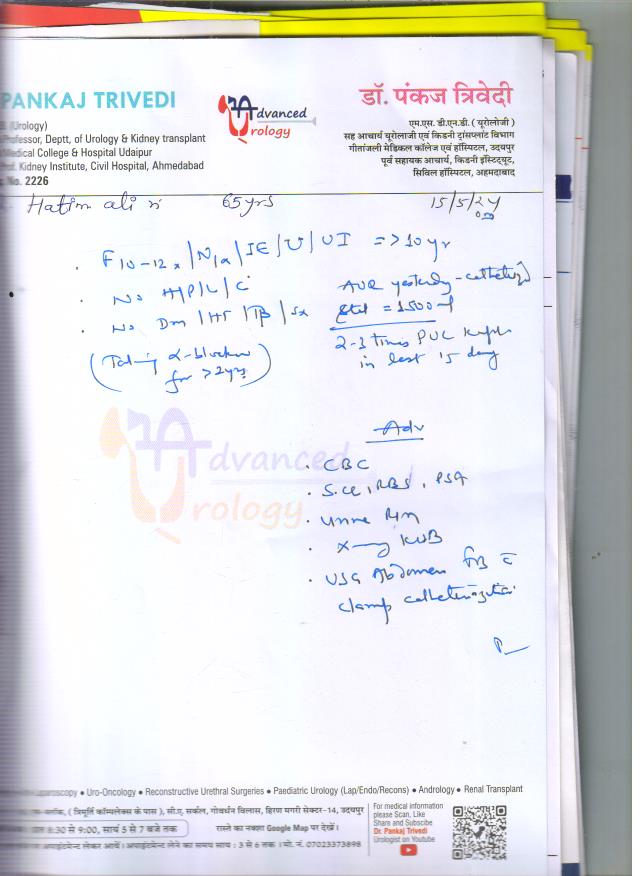 PANKAJ TRIVEDI
(Urology)
Professor, Deptt. of Urology & Kidney transplant
Medical College & Hospital Udaipur
Kidney Institute, Civil Hospital, Ahmedabad
No. 2226
Advanced
Urology
डॉ. पंकज त्रिवेदी
एम.एस. डी.एन.बी. ( यूरोलोजी )
सह आचार्य यूरोलाजी एवं किडनी ट्रांसप्लांट विभाग
गीतांजली मेडिकल कॉलेज एवं हॉस्पिटल, उदयपुर
पूर्व सहायक आचार्य, किडनी इंस्टिट्यूट,
सिविल हॉस्पिटल, अहमदाबाद
Hatim ali 65yrs 15/5/24
F10-12x / N / IE / U / UI => 10 yr
No H/P/L/C
No Dm / HT / TB / Sx
(Taking α-blocker
for >2yrs)
AUR yesterday - catheterized
= 1500 ml
2-3 times PUC
in last 15 day
Adv
. CBC
. S.cr, RBS, PSA
. Urine R/m
. X-ray KUB
. USG Abdomen c̄
clamp catheterization
Advanced
Urology
• Uro-Oncology • Reconstructive Urethral Surgeries • Paediatric Urology (Lap/Endo/Recons) • Andrology • Renal Transplant
( त्रिमूर्ति कॉम्पलेक्स के पास ), सी.ए. सर्कल, गोवर्धन विलास, हिरण मगरी सेक्टर-14, उदयपुर
8:30 से 9:00, सायं 5 से 7 बजे तक
रास्ते का नक्शा Google Map पर देखें।
अपाइंटमेन्ट लेने का समय सायं : 3 से 6 तक । मो. नं. 07023373898
For medical information
please Scan, Like
Share and Subscibe
Dr. Pankaj Trivedi
Urologist on Youtube